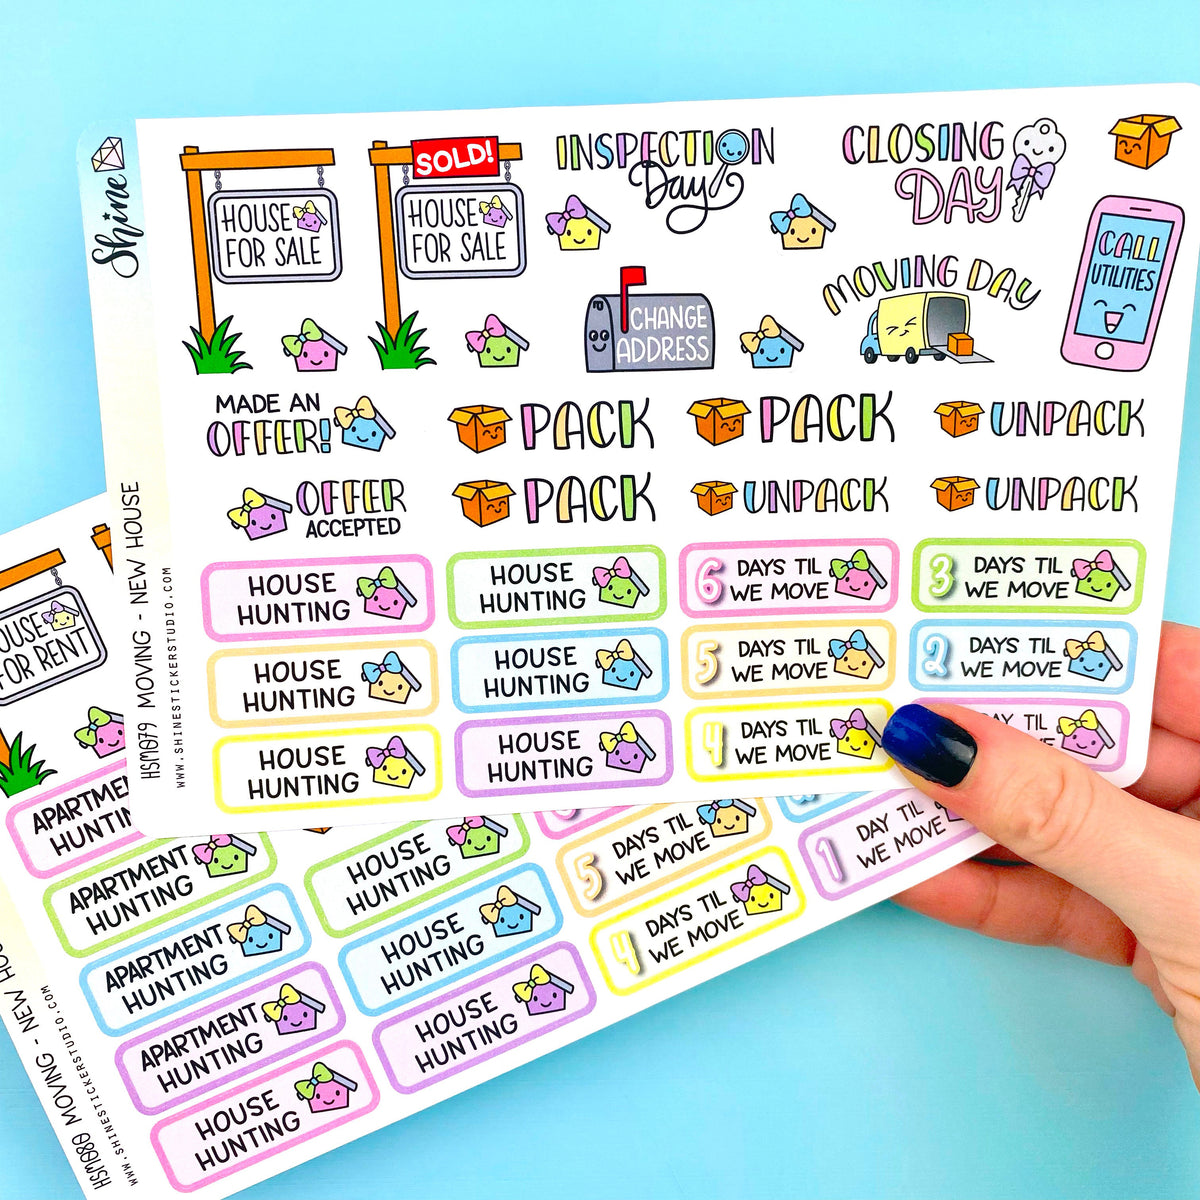 Shine
HSM079 MOVING - NEW HOUSE
WWW.SHINESTICKERSTUDIO.COM
HOUSE
FOR SALE
SOLD!
HOUSE
FOR SALE
INSPECTION
Day
CLOSING
DAY
CALL
UTILITIES
MOVING DAY
CHANGE
ADDRESS
MADE AN
OFFER!
PACK
PACK
UNPACK
OFFER
ACCEPTED
PACK
UNPACK
UNPACK
HOUSE
HUNTING
HOUSE
HUNTING
6 DAYS TIL
WE MOVE
3 DAYS TIL
WE MOVE
HOUSE
HUNTING
HOUSE
HUNTING
5 DAYS TIL
WE MOVE
2 DAYS TIL
WE MOVE
HOUSE
HUNTING
HOUSE
HUNTING
4 DAYS TIL
WE MOVE
DAY TIL
MOVE
FOR RENT
APARTMENT
HUNTING
HOUSE
HUNTING
5 DAYS TIL
WE MOVE
1 DAY TIL
WE MOVE
APARTMENT
HUNTING
HOUSE
HUNTING
4 DAYS TIL
WE MOVE
APARTMENT
HUNTING
HOUSE
HUNTING
HOUSE
HUNTING
HSM080 MOVING - NEW
WWW.SHINESTICKERSTUDIO.COM